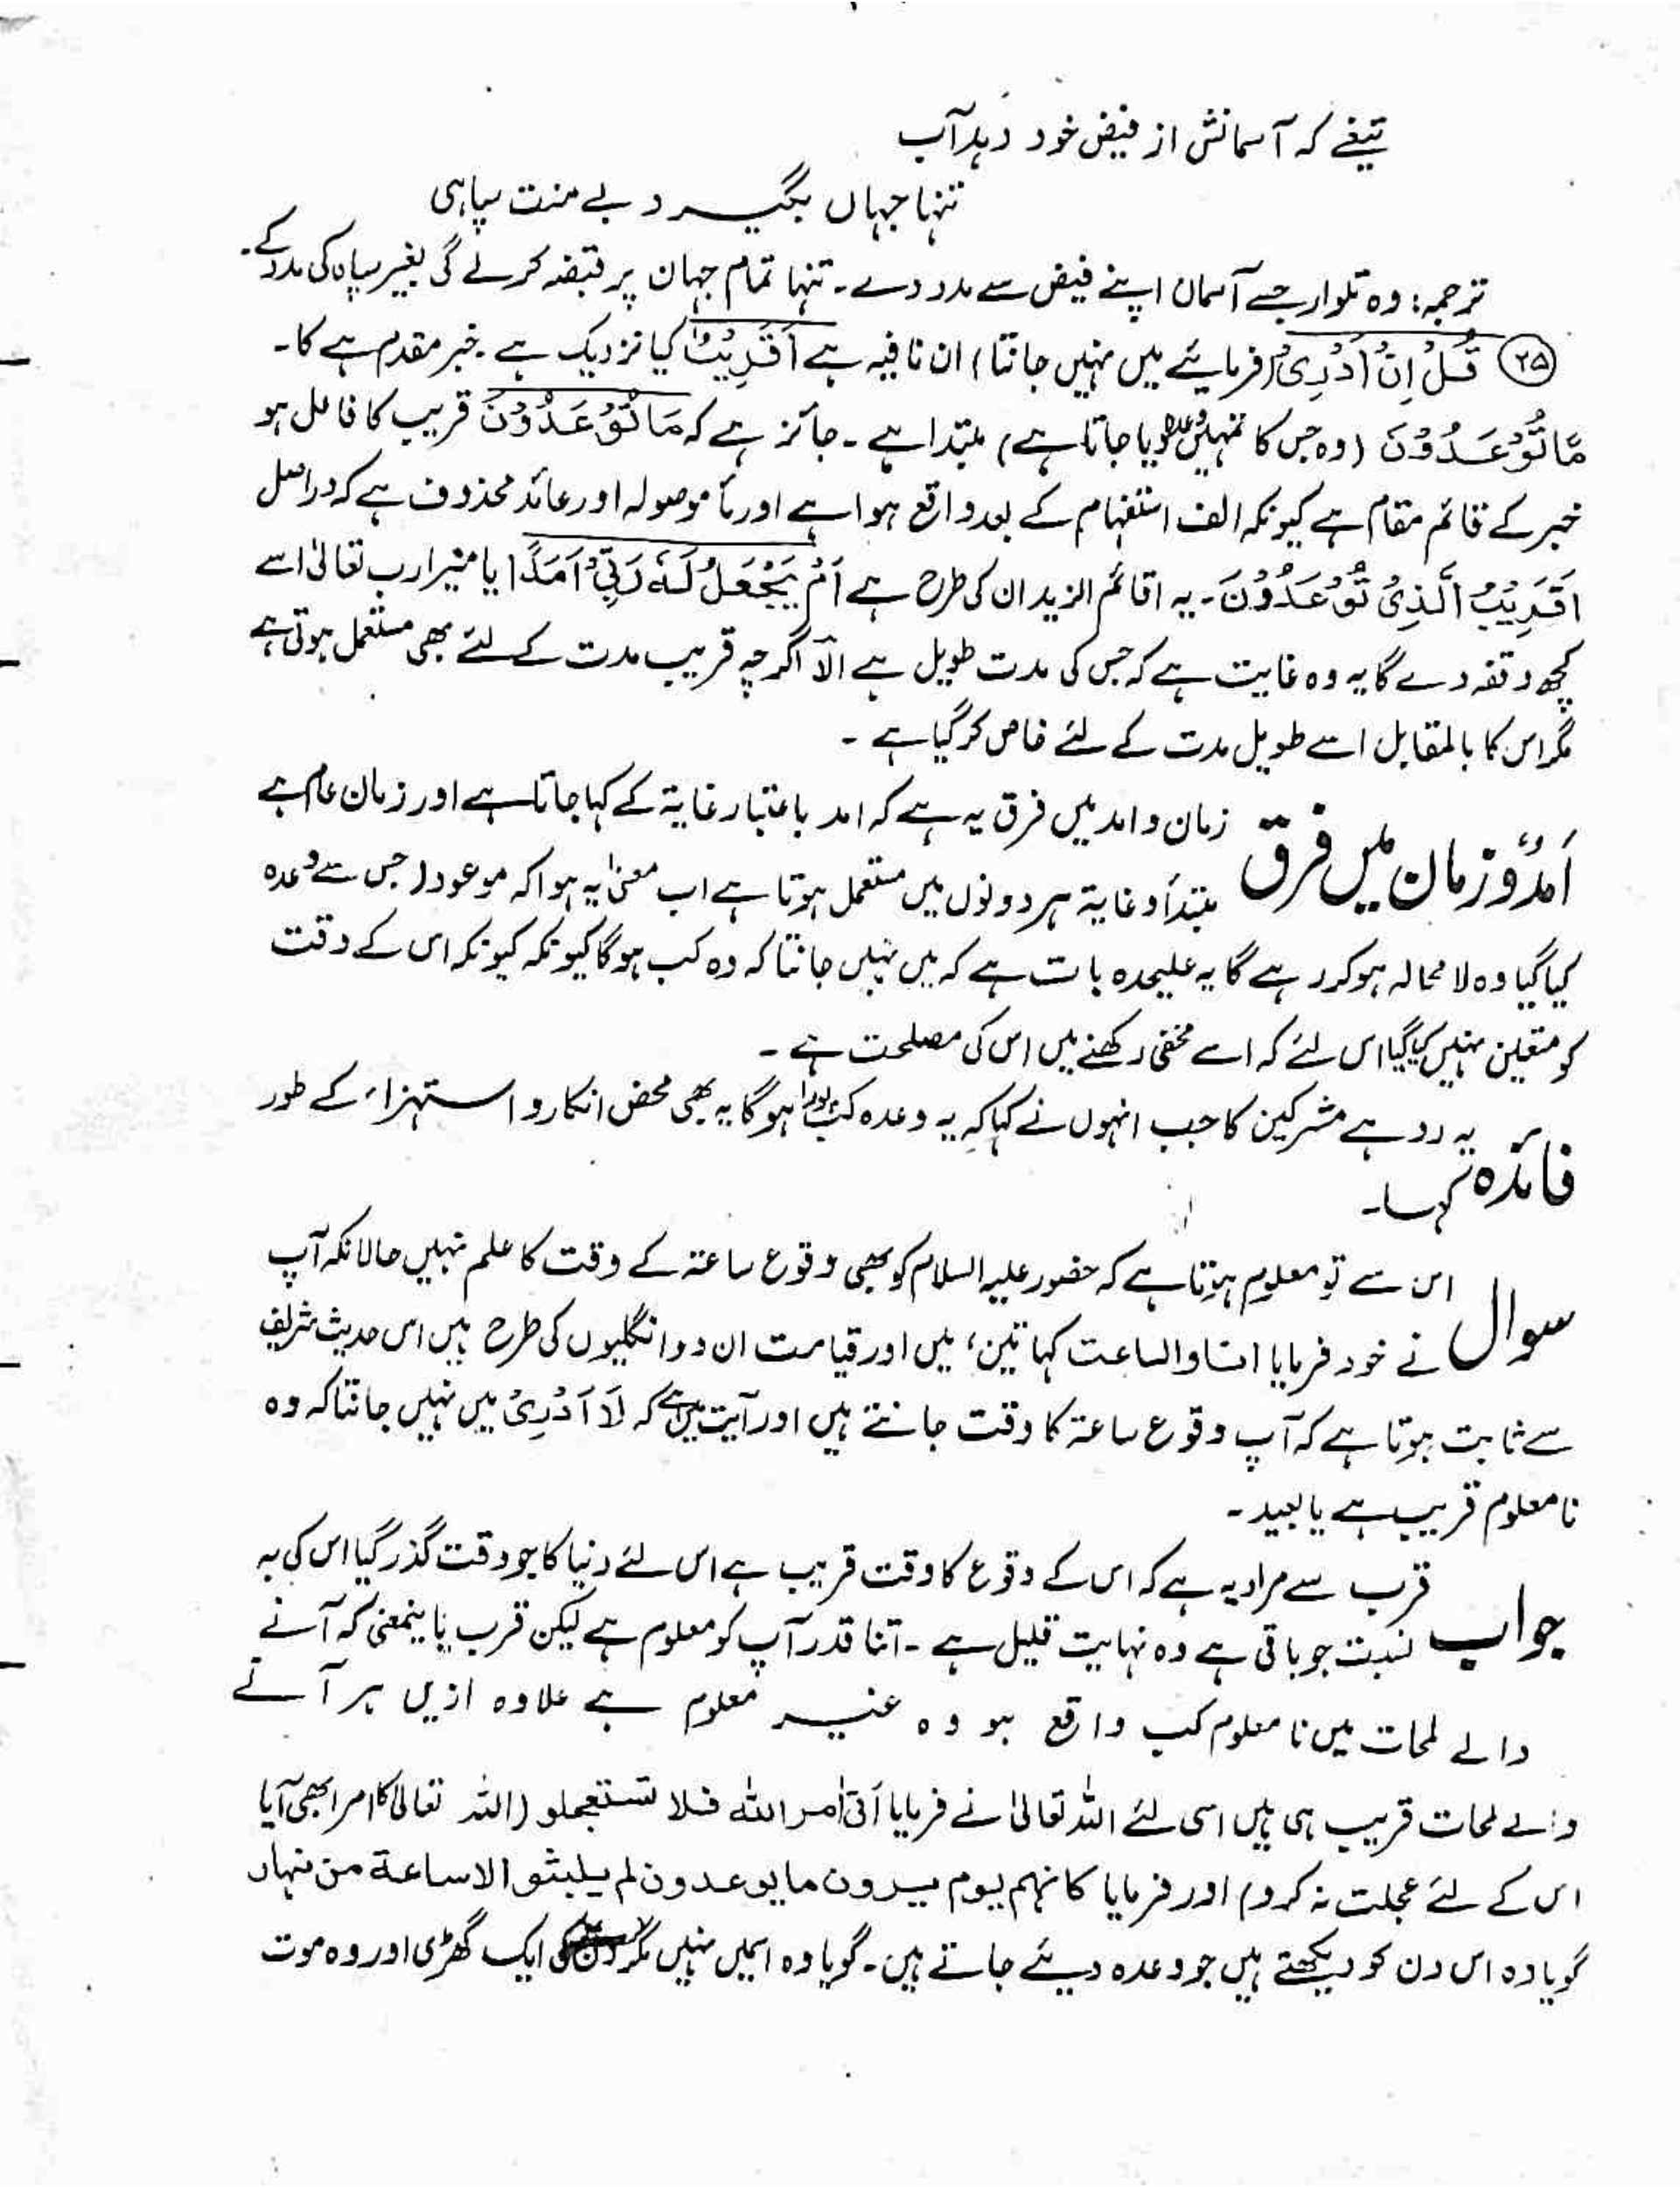 تیغے کہ آسمانش از فیض خود دہد آب
تنہا جہاں بگیرد بے منت سپاہی
ترجمہ: وہ تلوار جسے آسمان اپنے فیض سے مدد دے۔ تنہا تمام جہان پر قبضہ کرلے گی بغیر سپاہ کی مدد کے۔
(۲۵) قُلْ اِنْ اَدْرِیْ (فرمائیے میں نہیں جانتا) ان نافیہ ہے اَقَرِیْبٌ کیا نزدیک ہے۔ خبر مقدم ہے کا۔
مَّا تُوْعَدُوْنَ (وہ جس کا تمہیں وعدہ دیا جاتا ہے) مبتدا ہے۔ جائز ہے کہ مَا تُوْعَدُوْنَ قریب کا فاعل ہو
خبر کے قائم مقام ہے کیونکہ الف استفہام کے بعد واقع ہوا ہے اور ما موصولہ اور عائد محذوف ہے کہ دراصل
اَقَرِیْبٌ الَّذِیْ تُوْعَدُوْنَ۔ یہ اقائم الزیدان کی طرح ہے اَمْ یَجْعَلُ لَہٗ رَبِّیْ اَمَدًا یا میرا رب تعالیٰ اسے
کچھ وقفہ دے گا یہ وہ غایت ہے کہ جس کی مدت طویل ہے الآ اگرچہ قریب مدت کے لئے بھی مستعمل ہوتی ہے
مگر اس کا بالمقابل اسے طویل مدت کے لئے خاص کر گیا ہے ۔
اَمَدْ و زمان میں فرق زمان و امد میں فرق یہ ہے کہ امد باعتبار غایۃ کے کہا جاتا ہے اور زمان عام ہے
مبتدأ و غایۃ ہر دونوں میں مستعمل ہوتا ہے اب معنیٰ یہ ہوا کہ موعود (جس سے وعدہ
کیا گیا وہ لا محالہ ہو کر رہے گا یہ علیحدہ بات ہے کہ میں نہیں جانتا کہ وہ کب ہوگا کیونکہ کیونکہ اس کے وقت
کو متعین نہیں کیا گیا اس لئے کہ اسے مخفی رکھنے میں اس کی مصلحت ہے ۔
فائدہ یہ رد ہے مشرکین کا جب انہوں نے کہا کہ یہ وعدہ کب پورا ہوگا یہ بھی محض انکار و استہزاء کے طور
کہا۔
سوال اس سے تو معلوم ہوتا ہے کہ حضور علیہ السلام کو بھی وقوع ساعۃ کے وقت کا علم نہیں حالانکہ آپ
نے خود فرمایا انا والساعت کہاتین، میں اور قیامت ان دو انگلیوں کی طرح ہیں اس حدیث شریف
سے ثابت ہوتا ہے کہ آپ وقوع ساعۃ کا وقت جانتے ہیں اور آیت میں ہے کہ لَا اَدْرِیْ میں نہیں جانتا کہ وہ
نامعلوم قریب ہے یا بعید۔
جواب قرب سے مراد یہ ہے کہ اس کے وقوع کا وقت قریب ہے اس لئے دنیا کا جو وقت گذر گیا اس کی بہ
نسبت جو باقی ہے وہ نہایت قلیل ہے ۔ اتنا قدر آپ کو معلوم ہے لیکن قرب باینمعنی کہ آنے
والے لمحات میں نا معلوم کب واقع ہو وہ غیر معلوم ہے علاوہ ازیں ہر آنے
والے لمحات قریب ہی ہیں اسی لئے اللہ تعالیٰ نے فرمایا اَتیٰ امر اللہ فلا تستعجلو (اللہ تعالیٰ کا امر ابھی آیا
اس کے لئے عجلت نہ کرو) اور فرمایا کانہم یوم یرون ما یوعدون لم یلبثو الا ساعۃ من نہار
گویا وہ اس دن کو دیکھتے ہیں جو وعدہ دیئے جاتے ہیں۔ گویا وہ اسمیں نہیں مگر دن کی ایک گھڑی اور وہ موت